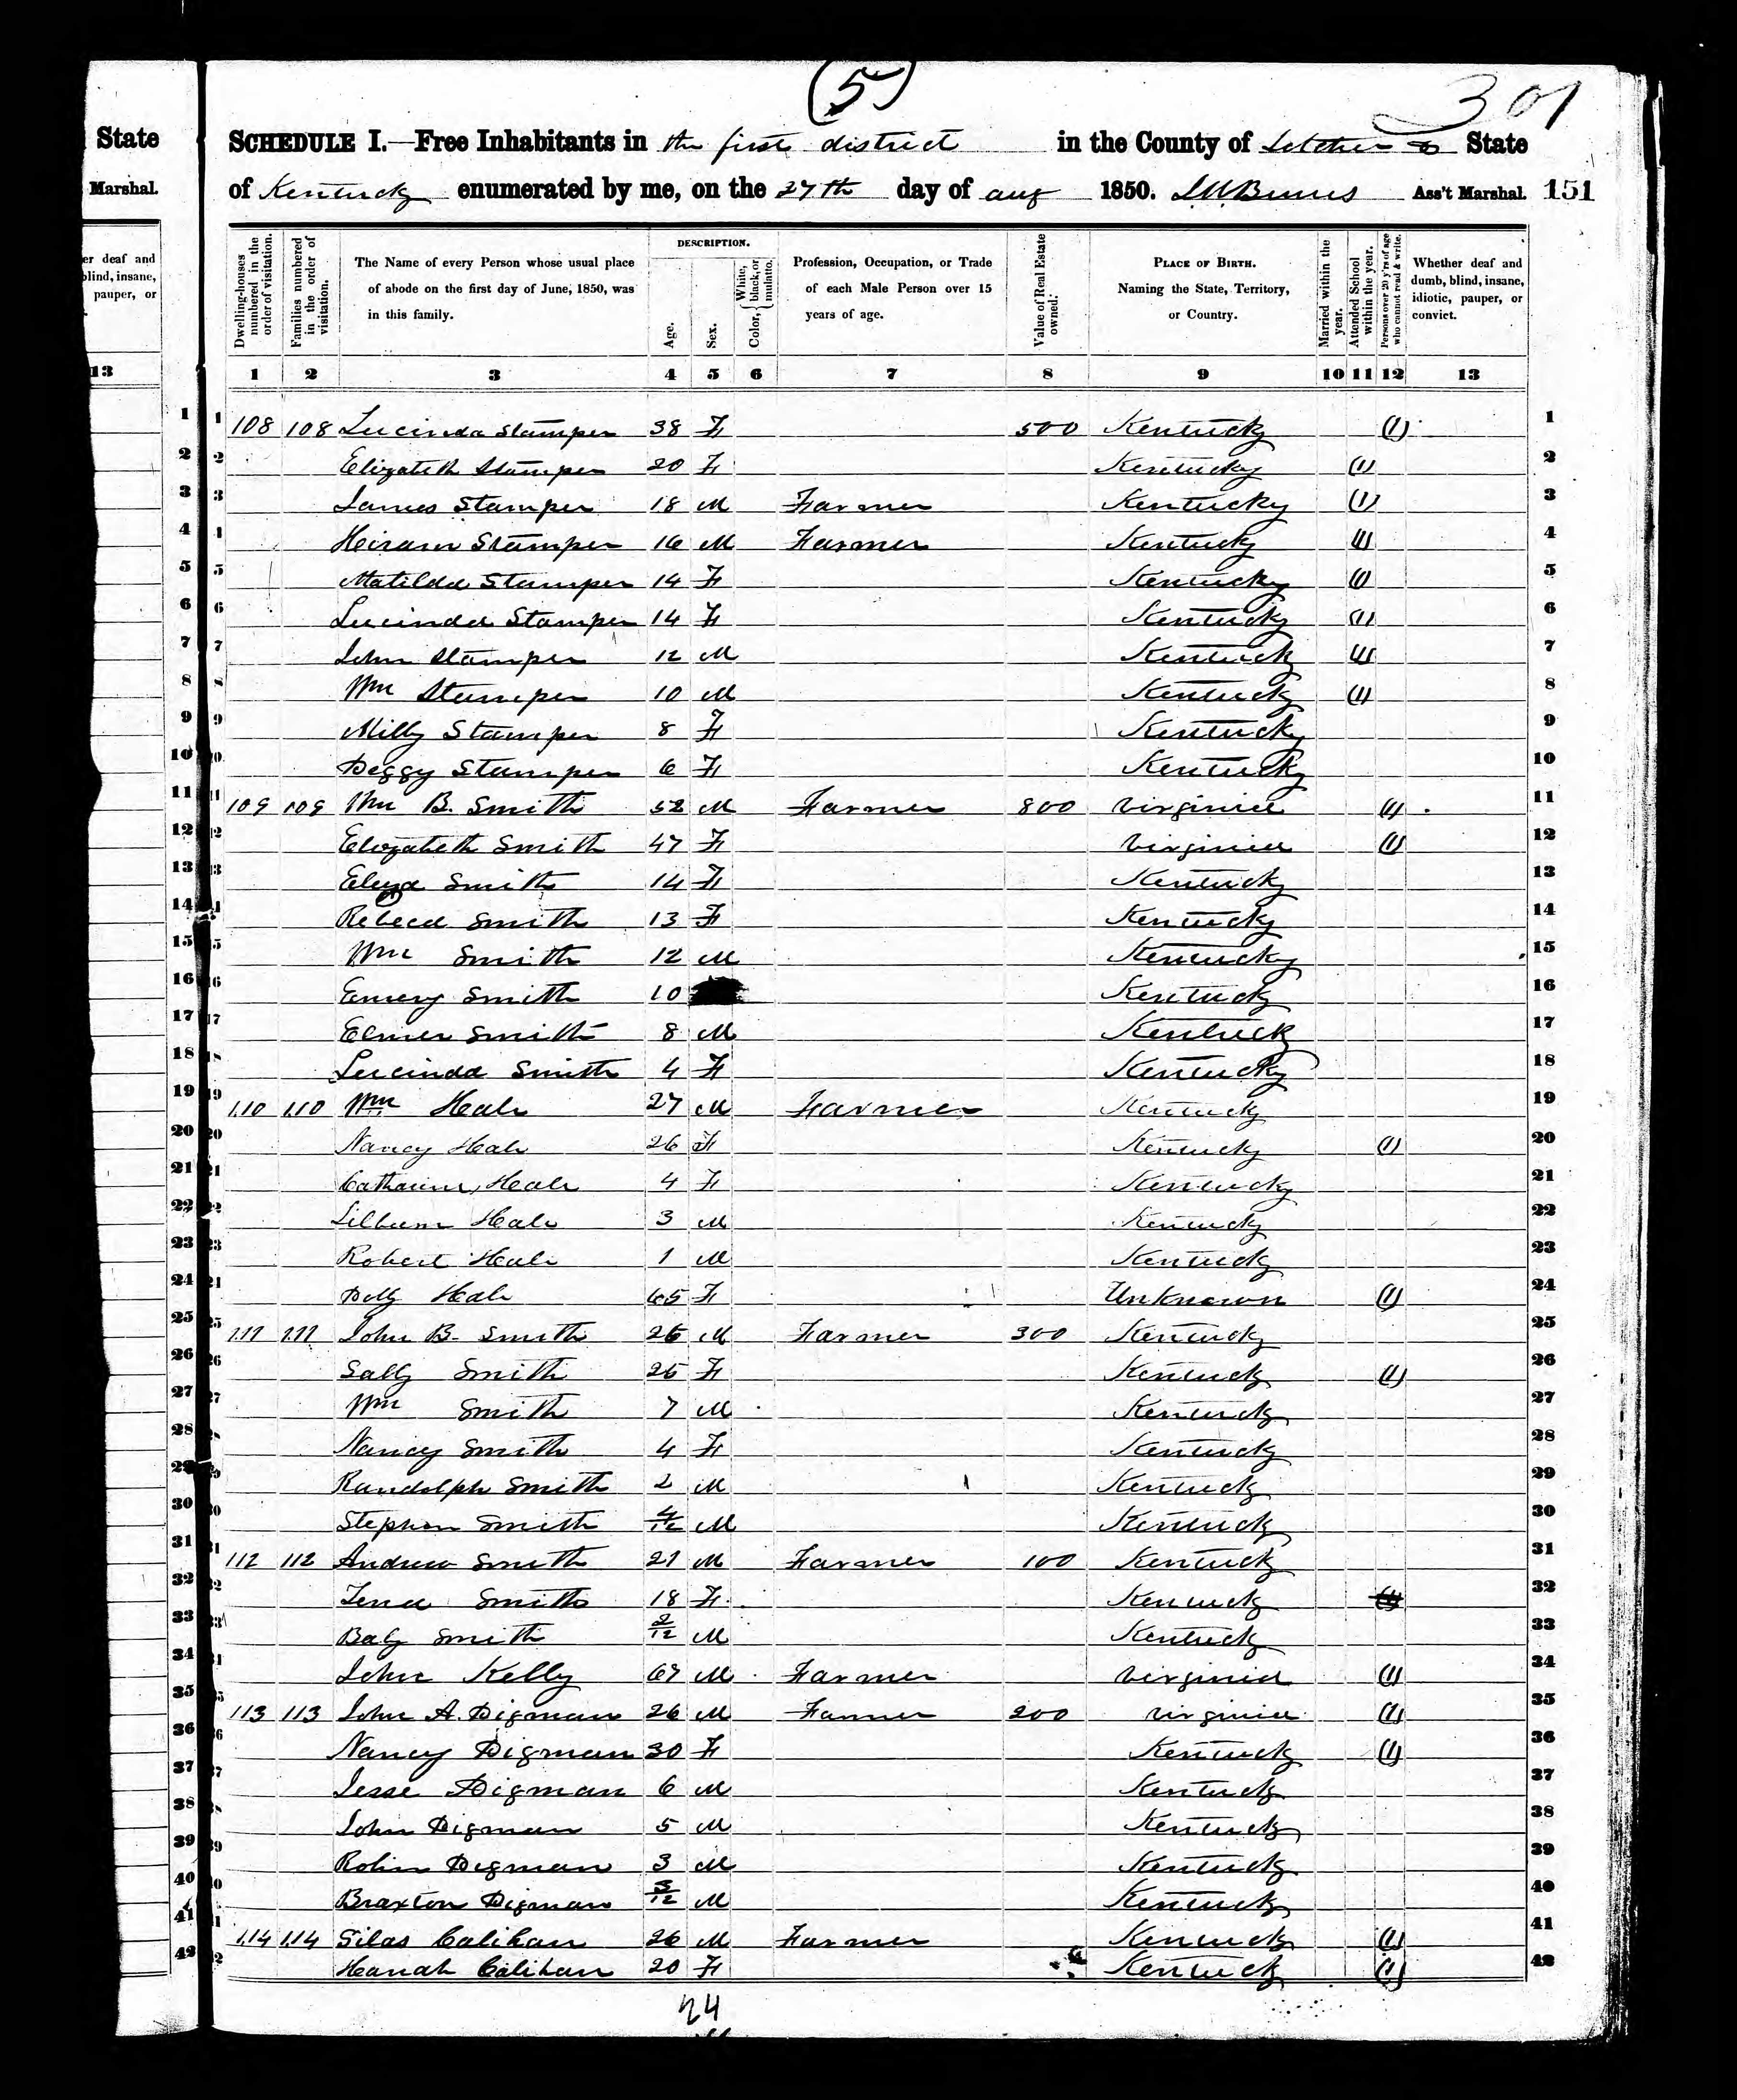 (5)
301
State
SCHEDULE I.—Free Inhabitants in the first district in the County of Letcher State
Marshal.
of Kentucky enumerated by me, on the 27th day of aug 1850. Ass't Marshal. 151
er deaf and
blind, insane,
pauper, or
13
Dwelling-houses numbered in the order of visitation.
Families numbered in the order of visitation.
The Name of every Person whose usual place of abode on the first day of June, 1850, was in this family.
DESCRIPTION.
Age.
Sex.
Color, { White, black, or mulatto.
Profession, Occupation, or Trade of each Male Person over 15 years of age.
Value of Real Estate owned.
PLACE OF BIRTH. Naming the State, Territory, or Country.
Married within the year.
Attended School within the year.
Persons over 20 y'rs of age who cannot read & write.
Whether deaf and dumb, blind, insane, idiotic, pauper, or convict.
1 2 3 4 5 6 7 8 9 10 11 12 13
1 108 108 Lucinda Stamper 38 F 500 Kentucky (1) 1
2 Elizabeth Stamper 20 F Kentucky (1) 2
3 James Stamper 18 M Farmer Kentucky (1) 3
4 Hiram Stamper 16 M Farmer Kentucky (1) 4
5 Matilda Stamper 14 F Kentucky (1) 5
6 Lucinda Stamper 14 F Kentucky (1) 6
7 John Stamper 12 M Kentucky (1) 7
8 Wm Stamper 10 M Kentucky (1) 8
9 Milly Stamper 8 F Kentucky 9
10 Peggy Stamper 6 F Kentucky 10
11 109 109 Wm B. Smith 52 M Farmer 800 Virginia (1) 11
12 Elizabeth Smith 47 F Virginia (1) 12
13 Smith 14 F Kentucky 13
14 Rebeca Smith 13 F Kentucky 14
15 Wm Smith 12 M Kentucky 15
16 Emery Smith 10 Kentucky 16
17 Elmer Smith 8 M Kentuck 17
18 Lucinda Smith 4 F Kentucky 18
19 110 110 Wm Hale 27 M Farmer Kentucky 19
20 Nancy Hale 26 F Kentucky (1) 20
21 Catharine Hale 4 F Kentucky 21
22 Hale 3 M Kentucky 22
23 Robert Hale 1 M Kentucky 23
24 Hale 65 F Unknown (1) 24
25 111 111 John B. Smith 26 M Farmer 300 Kentucky 25
26 Sally Smith 25 F Kentucky (1) 26
27 Wm Smith 7 M Kentucky 27
28 Nancy Smith 4 F Kentucky 28
29 Randolph Smith 2 M Kentucky 29
30 Stephen Smith 4/12 M Kentucky 30
31 112 112 Andrew Smith 21 M Farmer 100 Kentucky 31
32 Smith 18 F Kentucky 32
33 Smith 2/12 M Kentucky 33
34 John Kelly 67 M Farmer Virginia (1) 34
35 113 113 John A. Digman 26 M Farmer 200 Virginia (1) 35
36 Nancy Digman 30 F Kentucky (1) 36
37 Jesse Digman 6 M Kentucky 37
38 John Digman 5 M Kentucky 38
39 Robin Digman 3 M Kentucky 39
40 Braxton Digman 3/12 M Kentucky 40
41 114 114 Silas Calihan 26 M Farmer Kentucky (1) 41
42 Hanah Calihan 20 F Kentucky (1) 42
24